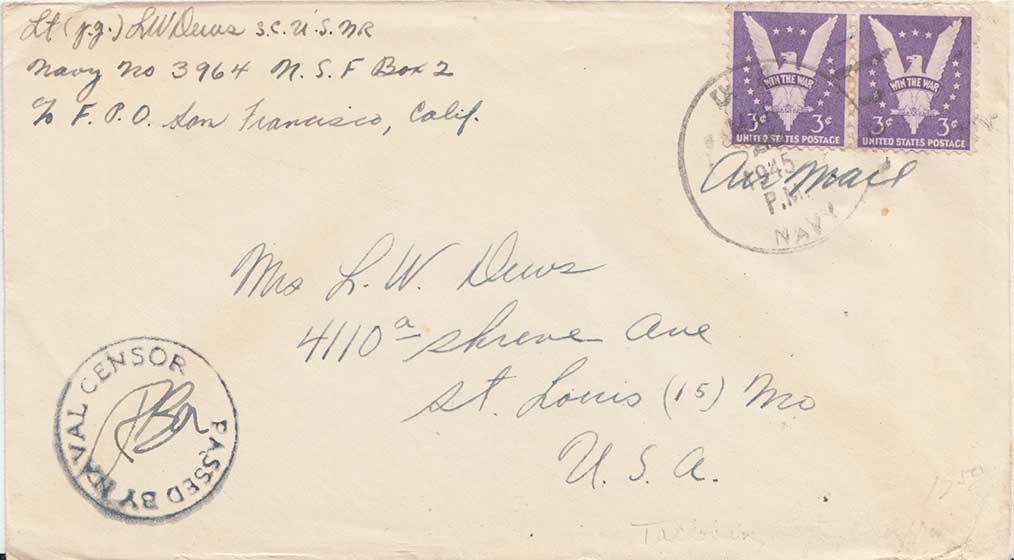 Lt (j.g.) L W Dews S.C. U.S.NR
Navy No 3964 N.S.F Box 2
c/o F.P.O. San Francisco, Calif.
WIN THE WAR
3¢ 3¢
UNITED STATES POSTAGE
WIN THE WAR
3¢ 3¢
UNITED STATES POSTAGE
1945
P.M.
NAVY
Air Mail
Mrs L. W. Dews
4110a Shreve Ave
St. Louis (15) Mo
U.S.A.
PASSED BY NAVAL CENSOR